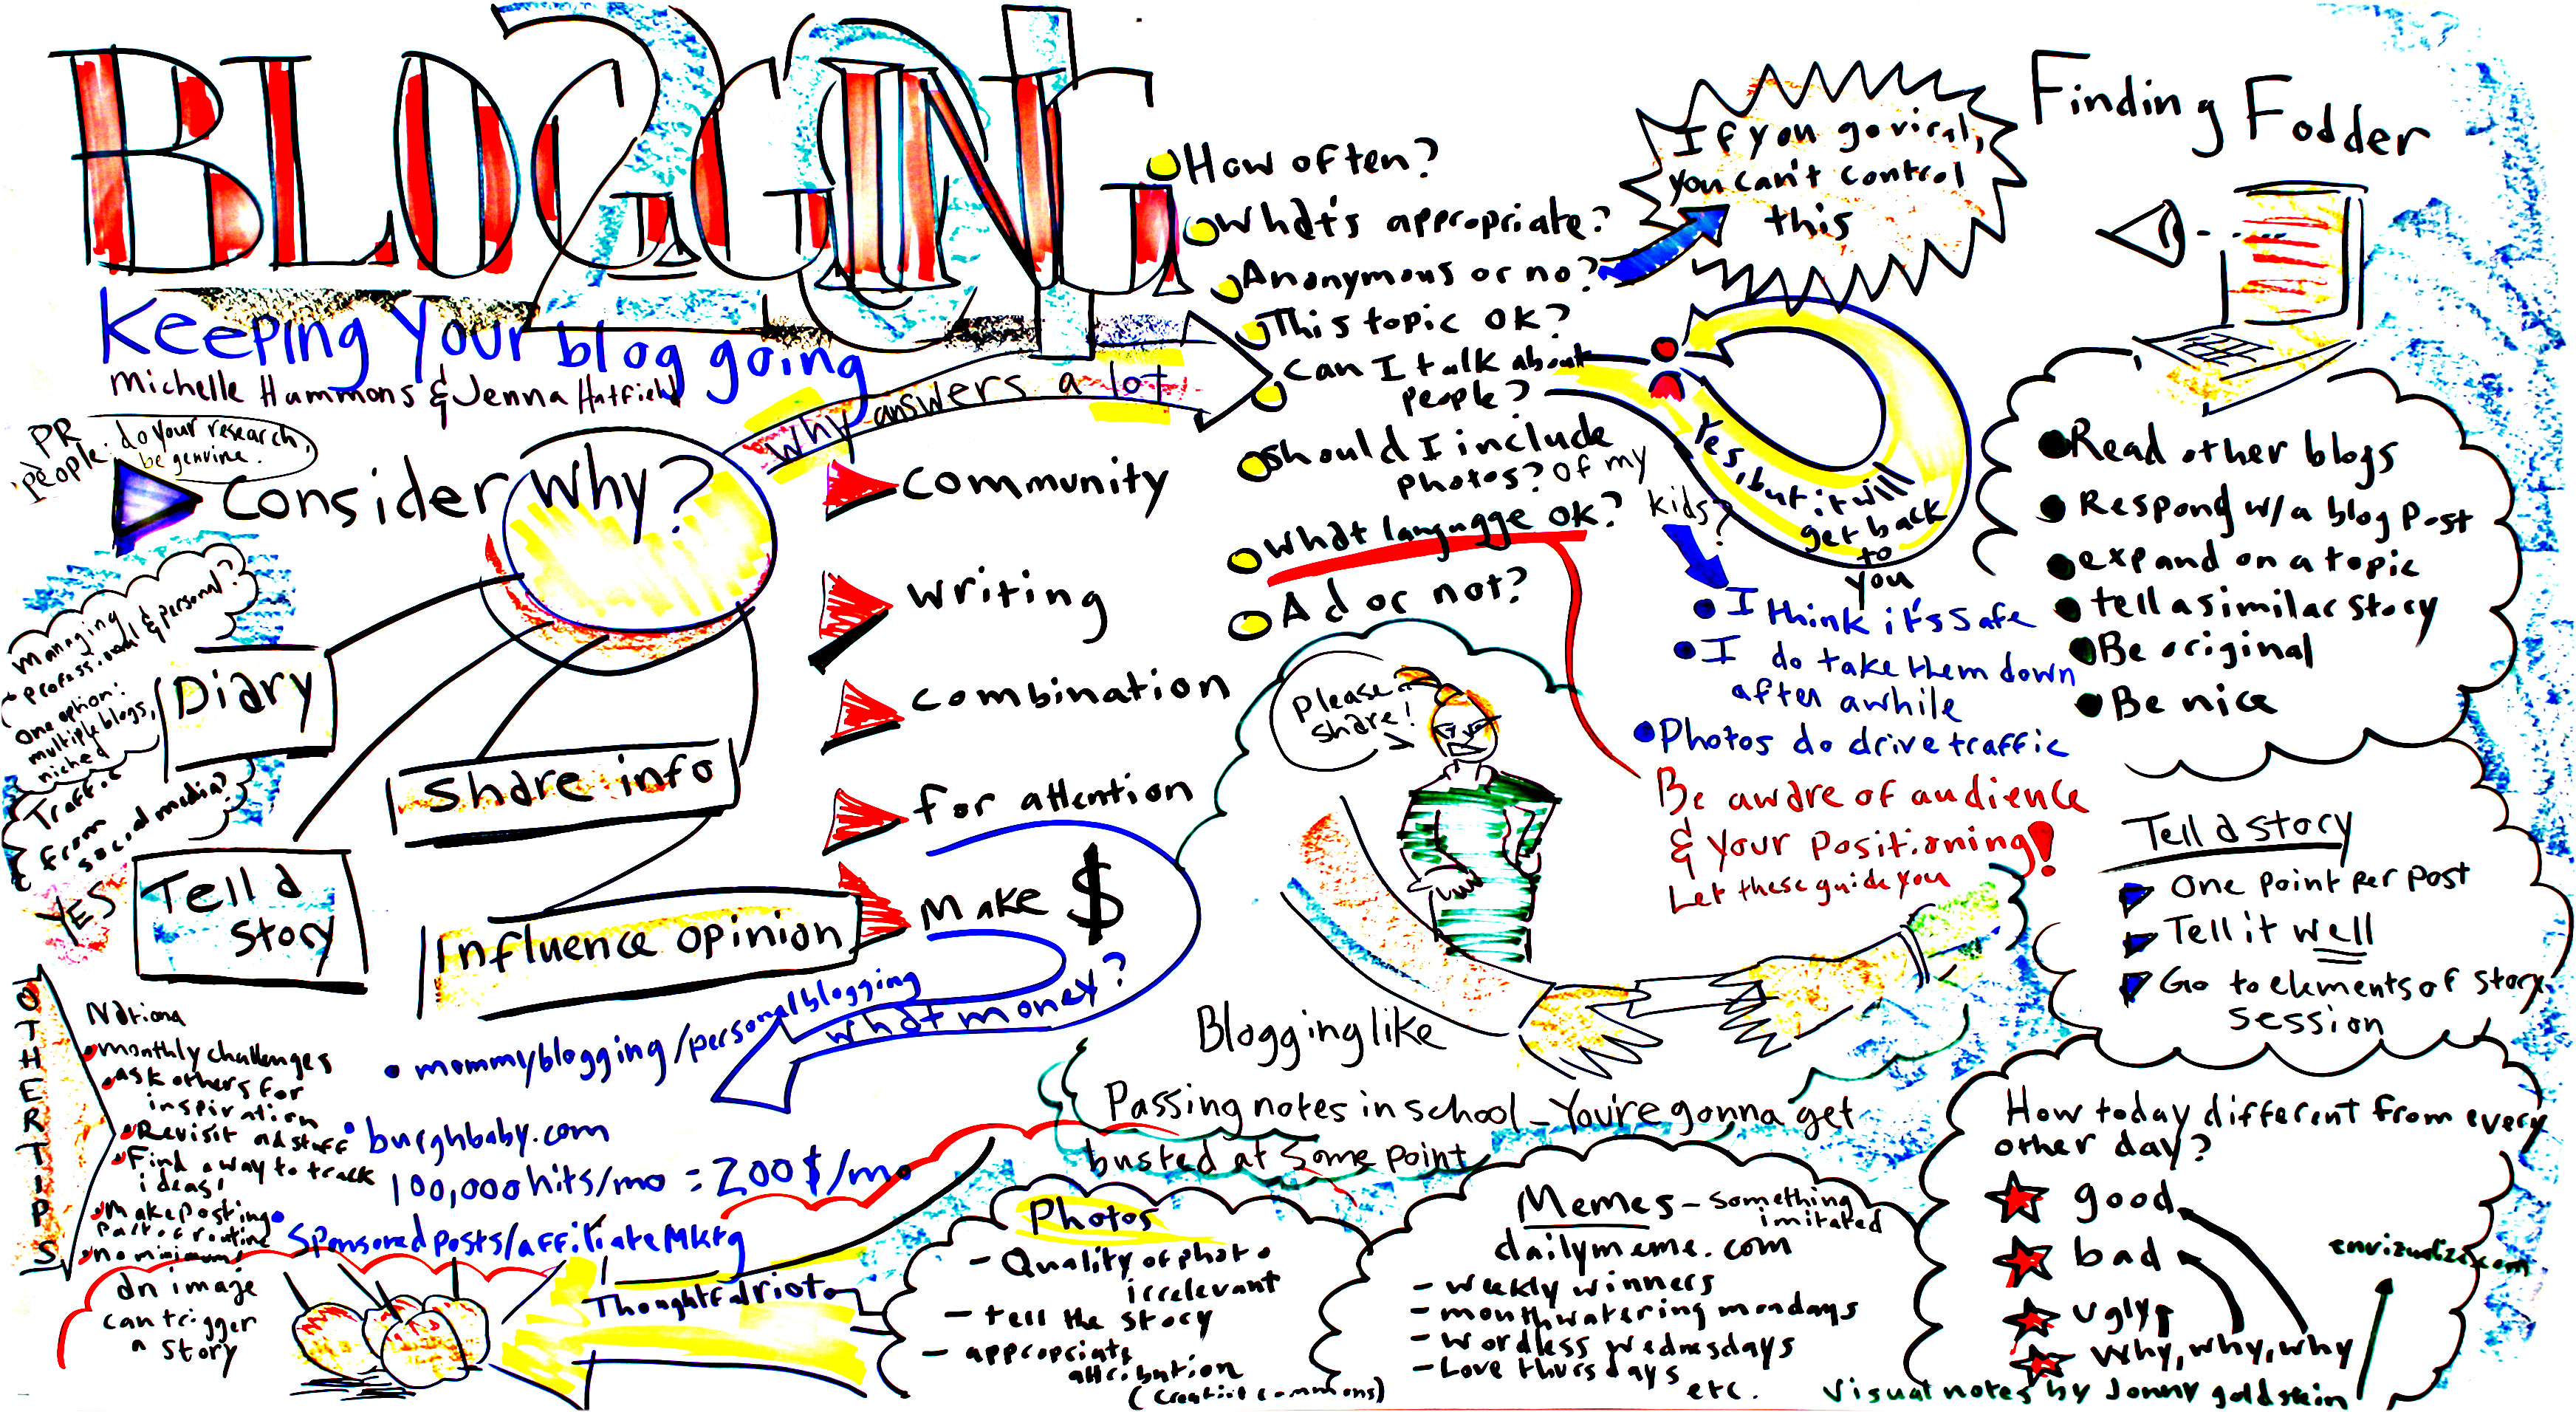 BLOGGING
201
Keeping Your blog going
Michelle Hammons & Jenna Hatfield
PR
People: do your research,
be genuine.
Consider Why?
Why answers a lot
Diary
Tell a
Story
Share info
Influence opinion
Community
Writing
combination
for attention
Make $
What money?
managing
professional & personal?
One option:
multiple blogs,
niched
Traffic
from
social media?
YES
How often?
What's appropriate?
Anonymous or no?
This topic OK?
Can I talk about
people?
Should I include
photos? Of my
kids?
What languagge OK?
Ad or not?
If you go viral,
you can't control
this
Yes, but it will
get back
to
you
I think it's safe
I do take them down
after awhile
Photos do drive traffic
Be aware of audience
& your positioning!
Let these guide you
Please
share!
Blogging like
Passing notes in school - You're gonna get
busted at some point
Finding Fodder
Read other blogs
Respond w/ a blog post
expand on a topic
tell a similar story
Be original
Be nice
Tell a story
One point per post
Tell it well
Go to elements of story
session
How today different from every
other day?
good
bad
ugly
Why, why, why
envizualize.com
Visual notes by Jonny goldstein
OTHER TIPS
monthly challenges
ask others for
inspiration
Revisit old stuff
Find a way to track
ideas!
make posting
part of routine
no minimums
an image
can trigger
a story
mommyblogging/personalblogging
burghbaby.com
100,000 hits/mo = 200$/mo
Sponsored posts/affiliate Mktg
Photos
- Quality of photo
irrelevant
- tell the story
- appropriate
attribution
(creative commons)
Memes - something
imitated
dailymeme.com
- weekly winners
- mouthwatering mondays
- wordless wednesdays
- Love thursdays
etc.